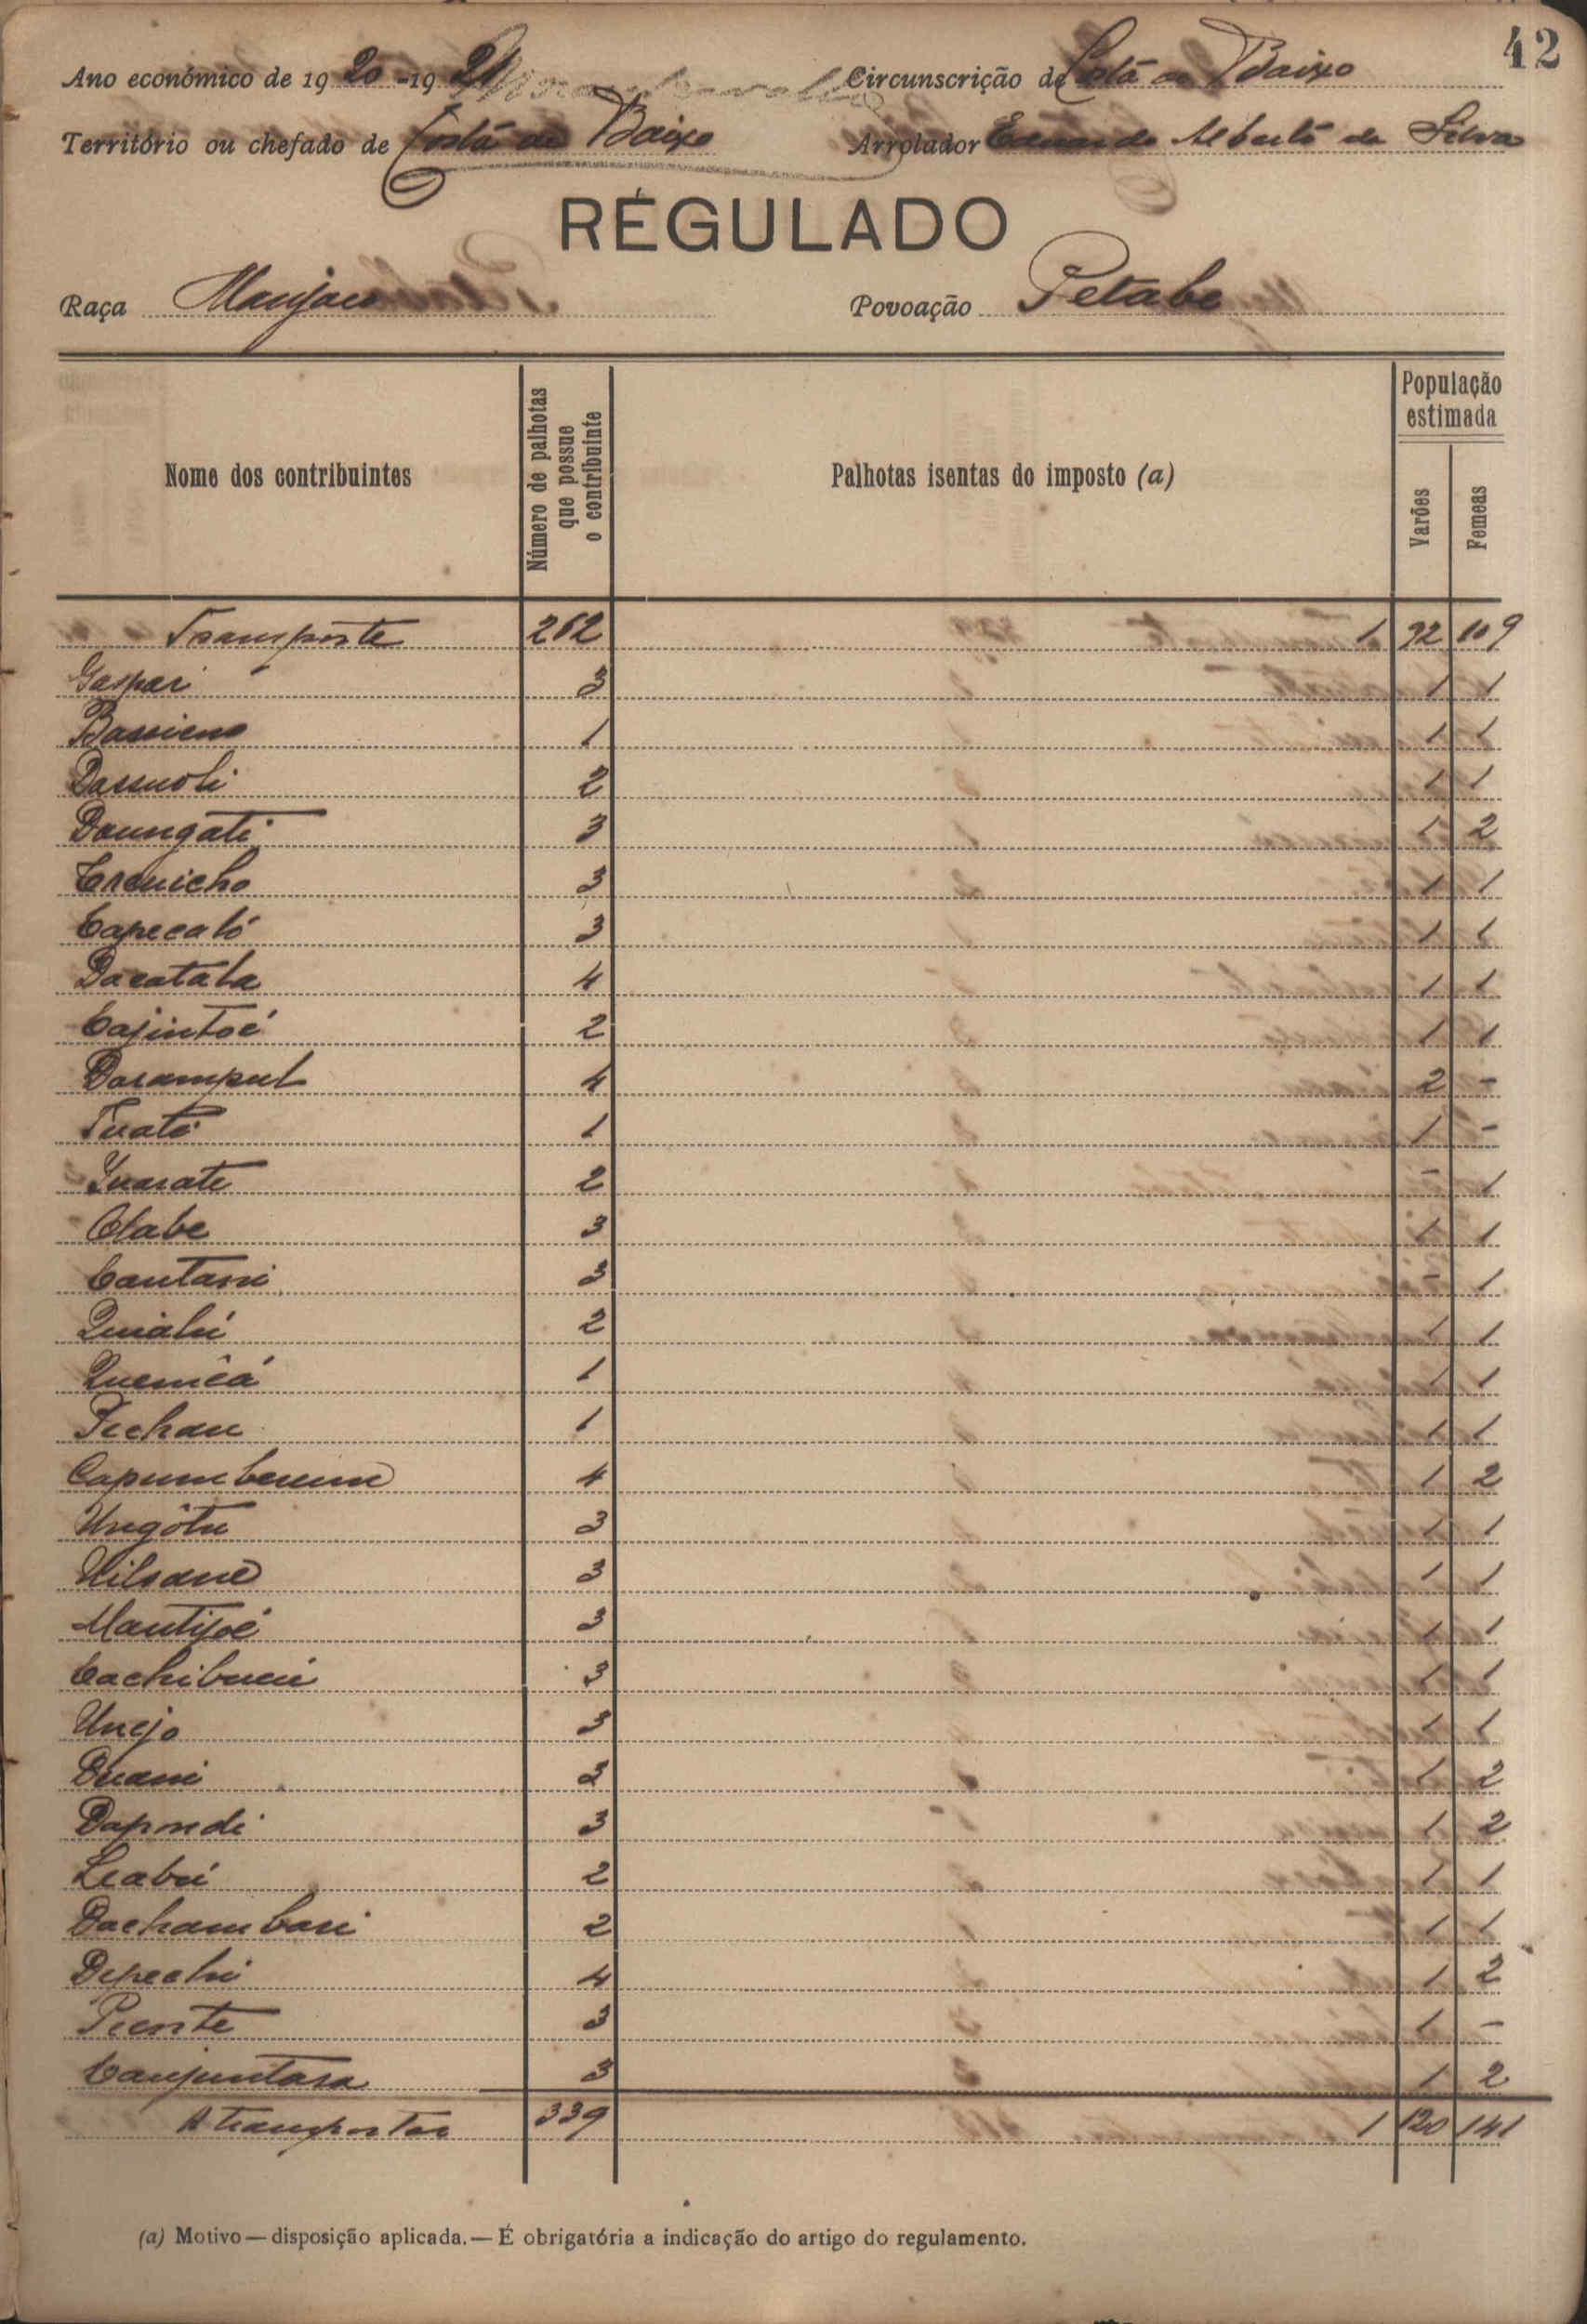 42
Ano económico de 1920-1921 Circunscrição de Costa de Baixo
Território ou chefado de Costa de Baixo Arrolador Eduardo Alberto da Silva
RÉGULADO
Raça Manjaco Povoação Petabe
Nome dos contribuintes Número de palhotas que possue o contribuinte Palhotas isentas do imposto (a) População estimada Varões Femeas
Transporte 262 1 92 109
Gaspar 3 1 1
Bassiemo 1 1 1
Dassuoli 2 1 1
Daungati 3 1 2
Crenicho 3 1 1
Capecaló 3 1 1
Dacatala 4 1 1
Cajintoé 2 1 1
Darampul 4 2 -
Tuate 1 1 -
Yuarate 2 - 1
Olabe 3 1 1
Cantani 3 - 1
Quialú 2 1 1
Quemêá 1 1 1
Fichau 1 1 1
Capumberum 4 1 2
Ungôtu 3 1 1
Uilsane 3 1 1
Mantijoé 3 1 1
Cachibucú 3 1 1
Unejo 3 1 1
Duani 3 1 2
Dapondi 3 1 2
Leabú 2 1 1
Dachambari 2 1 1
Dipechi 4 1 2
Piente 3 1 -
Canjuntasa 3 1 2
A transportar 339 1 120 141
(a) Motivo — disposição aplicada. — É obrigatória a indicação do artigo do regulamento.